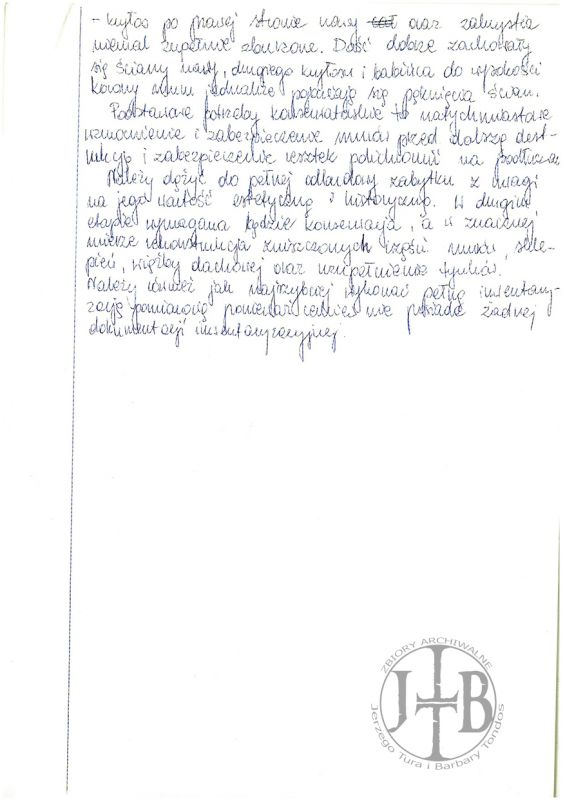 - kryłos po prawej stronie nawy oraz zakrystia
niemal zupełnie zburzone. Dość dobrze zachowały
się ściany nawy, drugiego kryłosu i babińca do wysokości
korony murów jednakże pojawiają się pęknięcia ścian.
Podstawowe potrzeby konserwatorskie to natychmiastowe
wzmocnienie i zabezpieczenie murów przed dalszą dest-
rukcją i zabezpieczenie resztek polichromii na podłuczu.
Należy dążyć do pełnej odbudowy zabytku z uwagi
na jego wartość estetyczną i historyczną. W drugim
etapie wymagana będzie konserwacja, a w znacznej
mierze rekonstrukcja zniszczonych części murów, skle-
pień, więźby dachowej oraz uzupełnienie tynków.
Należy również jak najszybciej wykonać pełną inwentary-
zację pomiarową ponieważ cerkiew nie posiada żadnej
dokumentacji inwentaryzacyjnej.
ZBIORY ARCHIWALNE
JTB
Jerzego Tura i Barbary Tondos